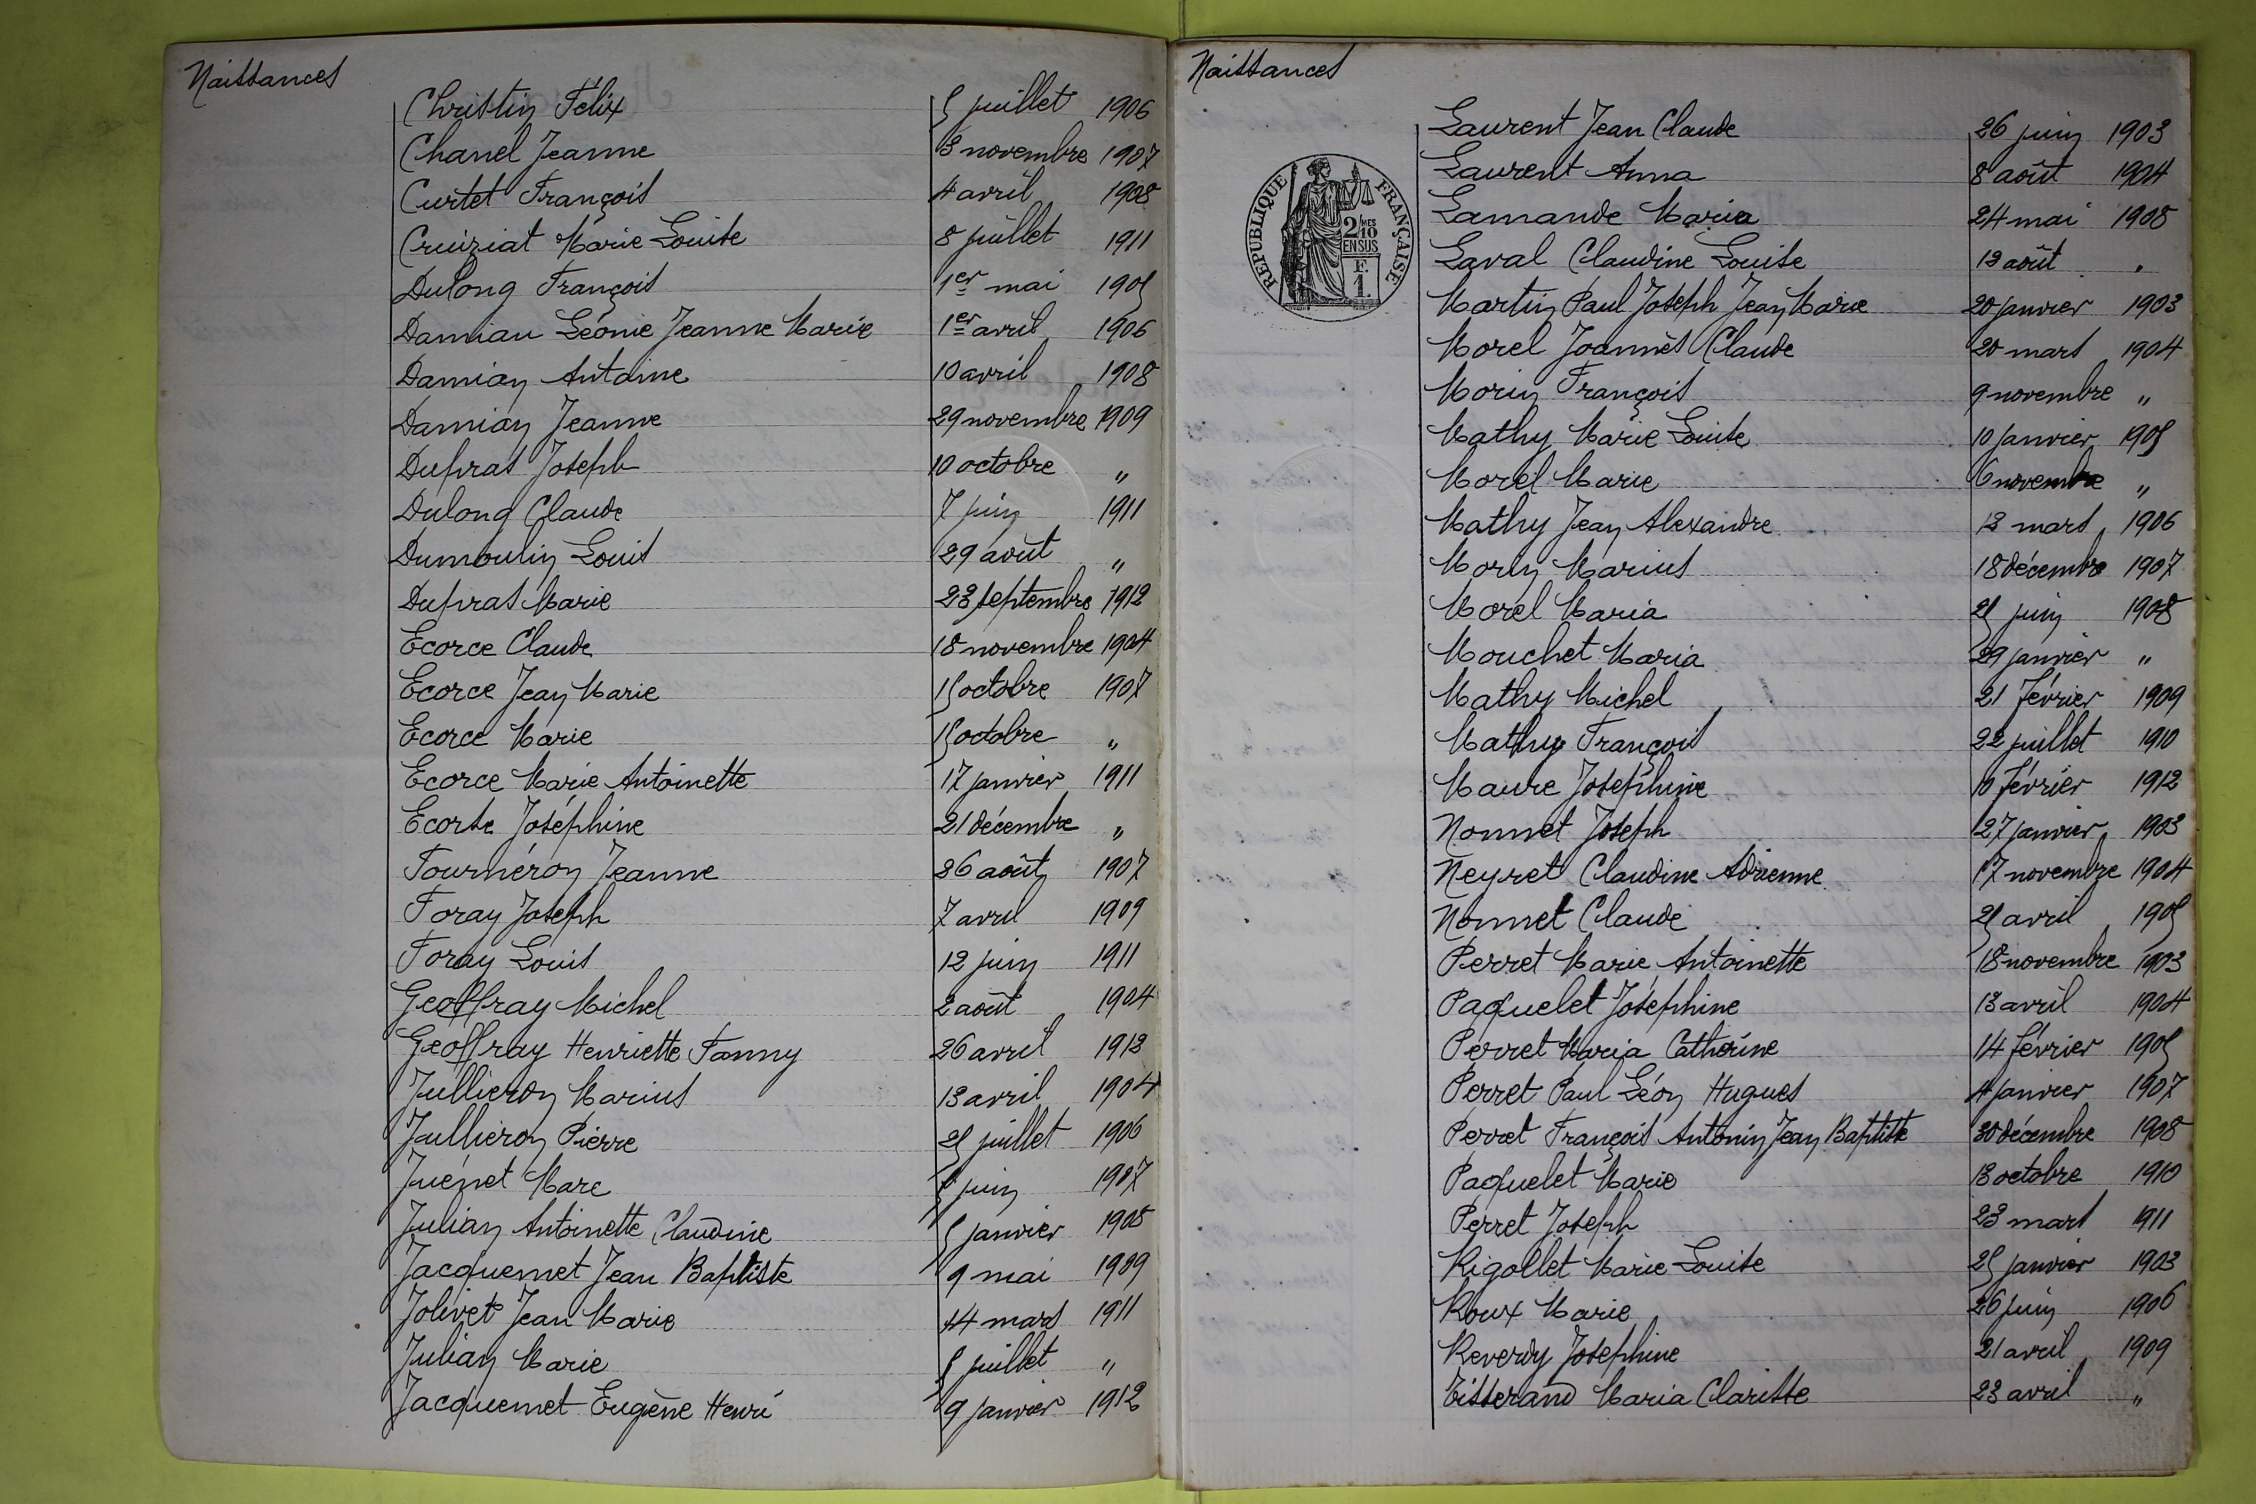 Naissances
Christin Félix 5 juillet 1906
Chanel Jeanne 3 novembre 1907
Curtet François 4 avril 1908
Cruiziat Marie Louise 8 juillet 1911
Dulong François 1er mai 1905
Damian Léonie Jeanne Marie 1er avril 1906
Damian Antoine 10 avril 1908
Damian Jeanne 29 novembre 1909
Dupras Joseph 10 octobre "
Dulong Claude 7 juin 1911
Dumoulin Louis 29 août "
Dupras Marie 23 septembre 1912
Ecorce Claude 18 novembre 1904
Ecorce Jean Marie 15 octobre 1907
Ecorce Marie 15 octobre "
Ecorce Marie Antoinette 17 janvier 1911
Ecorse Joséphine 21 décembre "
Fournéron Jeanne 26 août 1907
Foray Joseph 7 avril 1909
Foray Louis 12 juin 1911
Geoffray Michel 2 août 1904
Geoffray Henriette Fanny 26 avril 1912
Jullieron Marius 13 avril 1904
Jullieron Pierre 25 juillet 1906
Juénet Marc juin 1907
Julian Antoinette Claudine 5 janvier 1908
Jacquemet Jean Baptiste 9 mai 1909
Jolivet Jean Marie 14 mars 1911
Julian Marie juillet "
Jacquemet Eugène Henri 9 janvier 1912
Naissances
REPUBLIQUE FRANÇAISE
2/10 MES
EN SUS
F.
1.
Laurent Jean Claude 26 juin 1903
Laurent Anna 8 août 1904
Lamande Maria 24 mai 1908
Laval Claudine Louise 13 août "
Martin Paul Joseph Jean Marie 20 janvier 1903
Morel Joannès Claude 20 mars 1904
Morin François 9 novembre "
Mathy Marie Louise 10 janvier 1905
Morel Marie 6 novembre "
Mathy Jean Alexandre 12 mars 1906
Morin Marius 18 décembre 1907
Morel Maria 25 juin 1908
Mouchet Maria 29 janvier "
Mathy Michel 21 février 1909
Mathy François 22 juillet 1910
Maure Joséphine 10 février 1912
Nonnet Joseph 27 janvier 1903
Neyret Claudine Adrienne 17 novembre 1904
Nonnet Claude 25 avril 1905
Perret Marie Antoinette 18 novembre 1903
Paquelet Joséphine 13 avril 1904
Perret Maria Catherine 14 février 1905
Perret Paul Léon Hugues 4 janvier 1907
Perret François Antonin Jean Baptiste 30 décembre 1908
Paquelet Marie 13 octobre 1910
Perret Joseph 23 mars 1911
Rigollet Marie Louise 25 janvier 1903
Roux Marie 26 juin 1906
Reverdy Joséphine 21 avril 1909
Tisserand Maria Clarisse 23 avril "